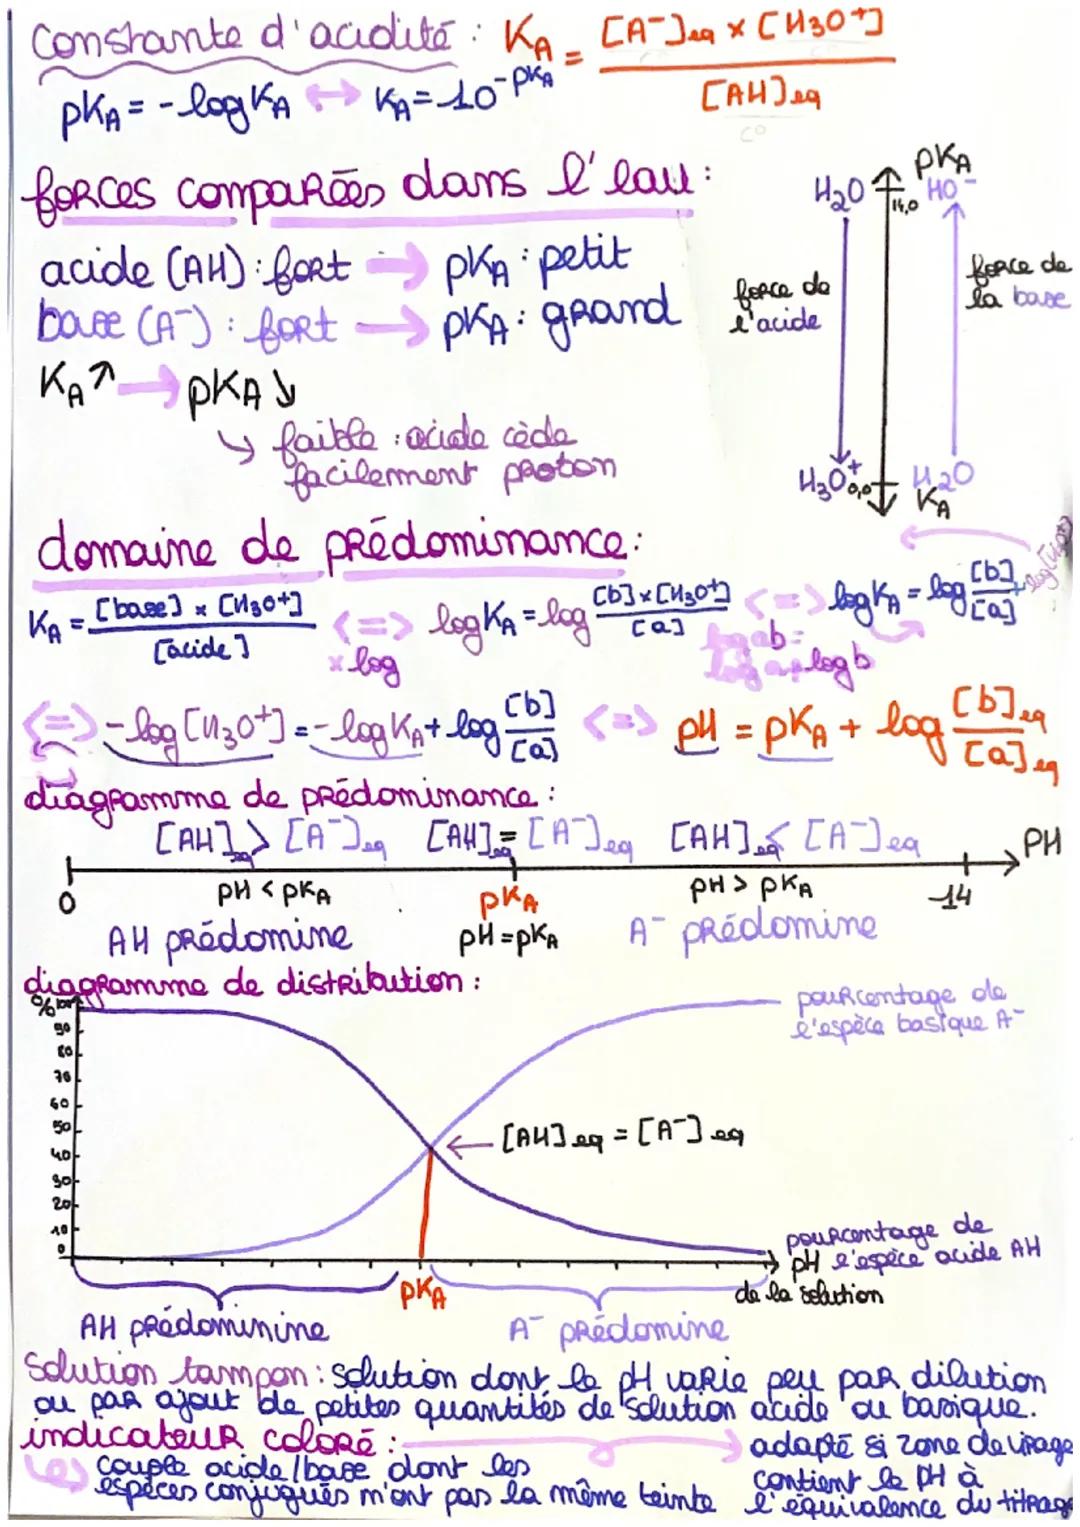 Constante d'acidité : KA = [A-]eq x [H3O+] / [AH]eq
c°
pKA = - log KA ↔ KA = 10^-pKA
forces comparées dans l'eau :
acide (AH) : fort → pKA : petit
base (A-) : fort → pKA : grand
KA ↗ → pKA ↘
↳ faible : acide cède
facilement proton
pKA
H2O 14,0 HO-
force de
l'acide
force de
la base
H3O+ 0,0 H2O
KA
domaine de prédominance :
KA = [base] x [H3O+] / [acide] <=> log KA = log [b] x [H3O+] / [a] <=> log KA = log [b] / [a] + log [H3O+]
x log
log ab =
log a + log b
<=> - log [H3O+] = - log KA + log [b] / [a] <=> pH = pKA + log [b]eq / [a]eq
diagramme de prédominance :
[AH]eq > [A-]eq [AH]eq = [A-]eq [AH]eq < [A-]eq PH
0 pH < pKA pKA pH > pKA 14
AH prédomine pH = pKA A- prédomine
diagramme de distribution :
% 100
90
80
70
60
50
40
30
20
10
0
pourcentage de
l'espèce basique A-
← [AH]eq = [A-]eq
pourcentage de
l'espèce acide AH
pH
de la solution
pKA
AH prédominine A- prédomine
Solution tampon : solution dont le pH varie peu par dilution
ou par ajout de petites quantités de solution acide ou basique.
indicateur coloré : → adapté si zone de virage
↳ couple acide/base dont les contient le pH à
espèces conjugués n'ont pas la même teinte l'équivalence du titrage